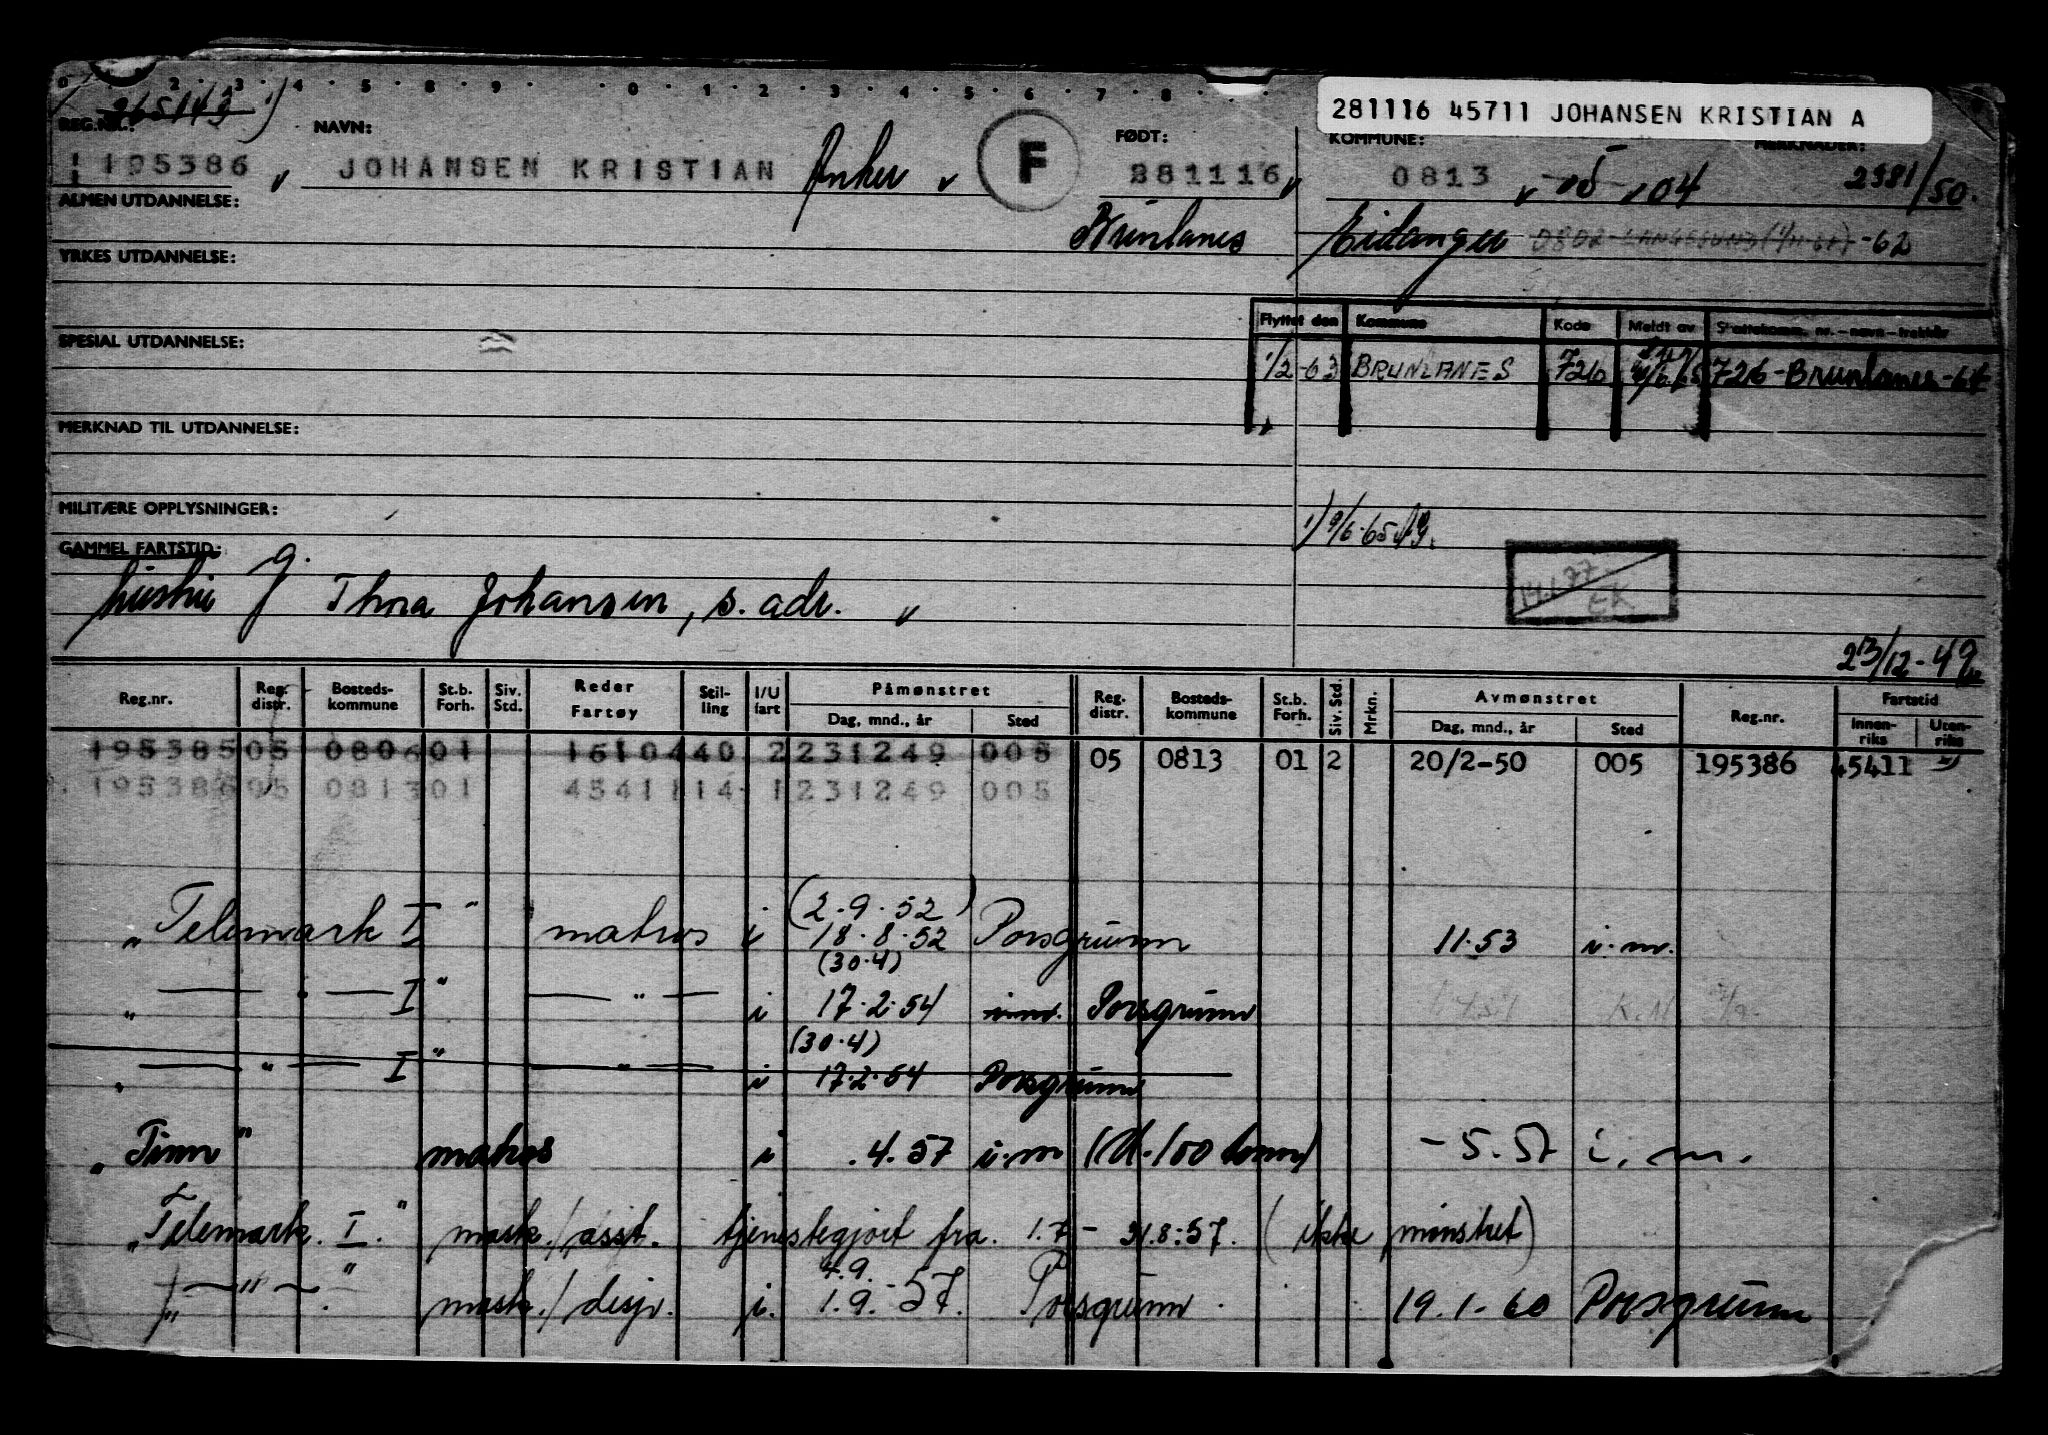 281116 45711 JOHANSEN KRISTIAN A
265143 1)
REG.NR.: NAVN: FØDT: KOMMUNE: MERKNADER:
195386 JOHANSEN KRISTIAN Anker F 281116 0813 05 04 2981/50.
ALMEN UTDANNELSE:
Brunlanes Eidanger 0802 LANGESUND -62
YRKES UTDANNELSE:
Flyttet den Kommune Kode Meldt av Skattekomm. nr. – navn – trekkår
SPESIAL UTDANNELSE:
1/2-63 BRUNLANES 726 726 - Brunlanes - 64
MERKNAD TIL UTDANNELSE:
MILITÆRE OPPLYSNINGER:
1) 9/6-65
GAMMEL FARTSTID:
14.1.77 EK
hustru g. Thora Johansen, s. adr.
23/12-49
Reg.nr. Reg. distr. Bosteds-kommune St.b. Forh. Siv. Std. Reder Fartøy Stil-ling I/U fart Påmønstret Dag, mnd., år Sted Reg. distr. Bosteds-kommune St.b. Forh. Siv. Std. Mrkn. Avmønstret Dag, mnd., år Sted Reg.nr. Fartstid Innen-riks Uten-riks
195385 05 0806 01 16104 40 2 231249 005 05 0813 01 2 20/2-50 005 195386 45411
195386 05 0813 01 45411 14 1 231249 005
(2.9.52)
"Telemark I" matros i 18.8.52 Porsgrunn 11.53 i.m.
(30.4)
" — " — I" — " — i 17.2.54 inm. Porsgrunn
(30.4)
" — " — I" — " — i 17.2.54 Porsgrunn
"Tinn" matros i .4.57 i.m (U. 100 tonn) -5.57 i.m.
"Telemark. I." mask./asst. tjenestegjort fra. 1.7 - 31.8.57. (ikke mønstret)
4.9.
" — " — " mask./disp. i. 1.9.-57. Porsgrunn. 19.1-60 Porsgrunn